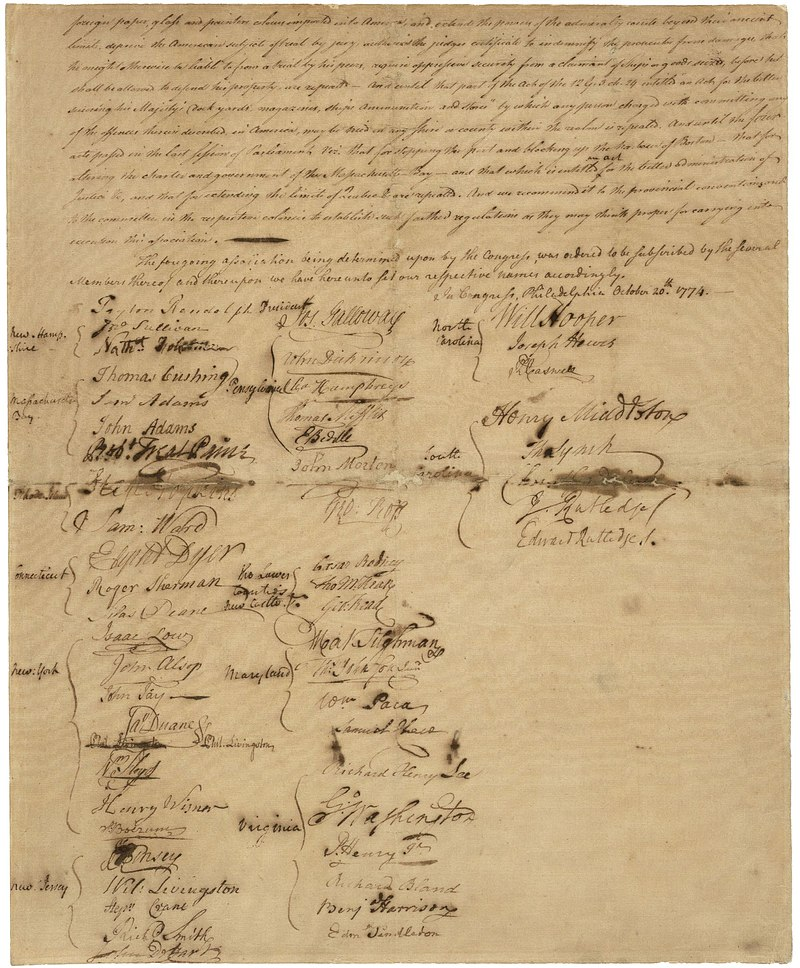 foreign paper, glass and painters colours imported into America, and extend the powers of the admiralty courts beyond their ancient
limits, deprive the American subject of trial by jury, authorize the judges certificate to indemnify the prosecutor from damages that
he might otherwise be liable to from a trial by his peers, require oppressive security from a claimant of ships or goods seized, before he
shall be allowed to defend his property, are repealed — And until that part of the Act of the 12 G. 3. ch. 24 entitled an Act for the better
securing his Majesty's Dock yards magazines, ships Ammunition and stores by which any person charged with committing any
of the offences therein described, in America, may be tried in any shire or county within the realm is repealed. And until the four
acts passed in the last session of Parliament Viz. that for stopping the port and blocking up the harbour of Boston — that for
altering the charter and government of the Massachusetts Bay — and that which is entitled an act for the better administration of
Justice &c, and that for extending the limits of Quebec &c are repealed. And we recommend it to the provincial conventions, and
to the committees in the respective colonies to establish such farther regulations as they may think proper for carrying into
execution this association.
The foregoing association being determined upon by the Congress, was ordered to be subscribed by the several
Members thereof and thereupon we have hereunto set our respective names accordingly.
In Congress, Philadelphia October 20th. 1774. —
Peyton Randolph President
New Hamp-
shire
Jno. Sullivan
Nathl.
Massachusetts
Bay
Thomas Cushing
Saml Adams
John Adams
Robt. Treat Paine
Rhode Island
Step Hopkins
Sam: Ward
Connecticut
Elipht Dyer
Roger Sherman
Silas Deane
New-York
Isaac Low
John Alsop
John Jay
Jas. Duane
Phil. Livingston
Phil. Livingston
Wm Floyd
Henry Wisner
S: Boerum
New Jersey
J. Kinsey
Wil: Livingston
Stepn. Crane
Richd. Smith
John De Hart
Pensylvania
Jos. Galloway
John Dickinson
Cha Humphreys
Thomas Mifflin
E Biddle
John Morton
Geo: Ross
The Lower
Counties
New Castle
Cæsar Rodney
Tho M:Kean
Geo Read
Maryland
Mat Tilghman
Ths Johnson Junr
Wm Paca
Samuel Chase
Virginia
Richard Henry Lee
Go Washington
P. Henry Jr
Richard Bland
Benja Harrison
Edmd Pendleton
North
Carolina
Will Hooper
Joseph Hewes
Rd Caswell
South
Carolina
Henry Middleton
Tho Lynch
J Rutledge
Edward Rutledge